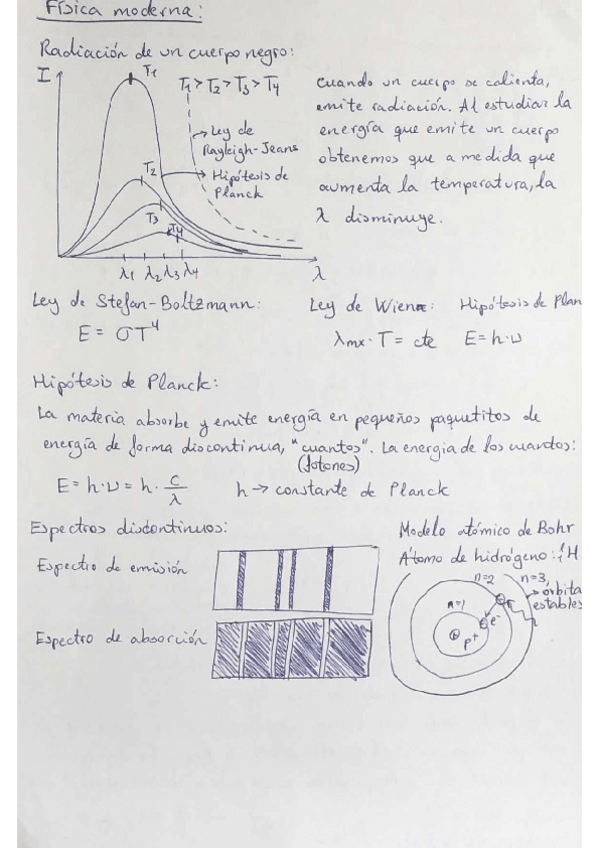 Física moderna:
Radiación de un cuerpo negro:
I
T1
T1 > T2 > T3 > T4
Ley de
Rayleigh-Jeans
Hipótesis de
Planck
T2
T3
T4
λ1 λ2 λ3 λ4
λ
Cuando un cuerpo se calienta,
emite radiación. Al estudiar la
energía que emite un cuerpo
obtenemos que a medida que
aumenta la temperatura, la
λ disminuye.
Ley de Stefan-Boltzmann:
E = σT⁴
Ley de Wien:
λmx · T = cte
Hipótesis de Plan
E = h·υ
Hipótesis de Planck:
La materia absorbe y emite energía en pequeños paquetitos de
energía de forma discontinua, "cuantos". La energia de los cuantos:
(fotones)
E = h·υ = h · c/λ
h → constante de Planck
Espectros discontinuos:
Espectro de emisión
Espectro de absorción
Modelo atómico de Bohr
Átomo de hidrógeno: ¹H
n=1
n=2
n=3
órbita
estables
e⁻
p⁺